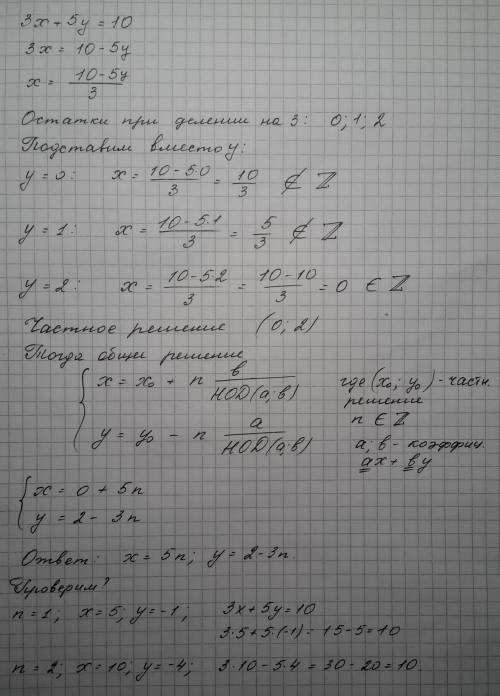 3x + 5y = 10
3x = 10 - 5y
x = (10 - 5y)/3
Остатки при делении на 3: 0; 1; 2
Подставим вместо y:
y = 0: x = (10 - 5·0)/3 = 10/3 ∉ ℤ
y = 1: x = (10 - 5·1)/3 = 5/3 ∉ ℤ
y = 2: x = (10 - 5·2)/3 = (10 - 10)/3 = 0 ∈ ℤ
Частное решение (0; 2)
Тогда общее решение
x = x₀ + n в/НОД(а; в) где (x₀; y₀) - частн.
решение
n ∈ ℤ
y = y₀ - n а/НОД(а; в) а; в - коэффиц.
ax + вy
x = 0 + 5n
y = 2 - 3n
Ответ: x = 5n; y = 2 - 3n.
Проверим?
n = 1; x = 5; y = -1; 3x + 5y = 10
3·5 + 5·(-1) = 15 - 5 = 10
n = 2; x = 10; y = -4; 3·10 - 5·4 = 30 - 20 = 10.